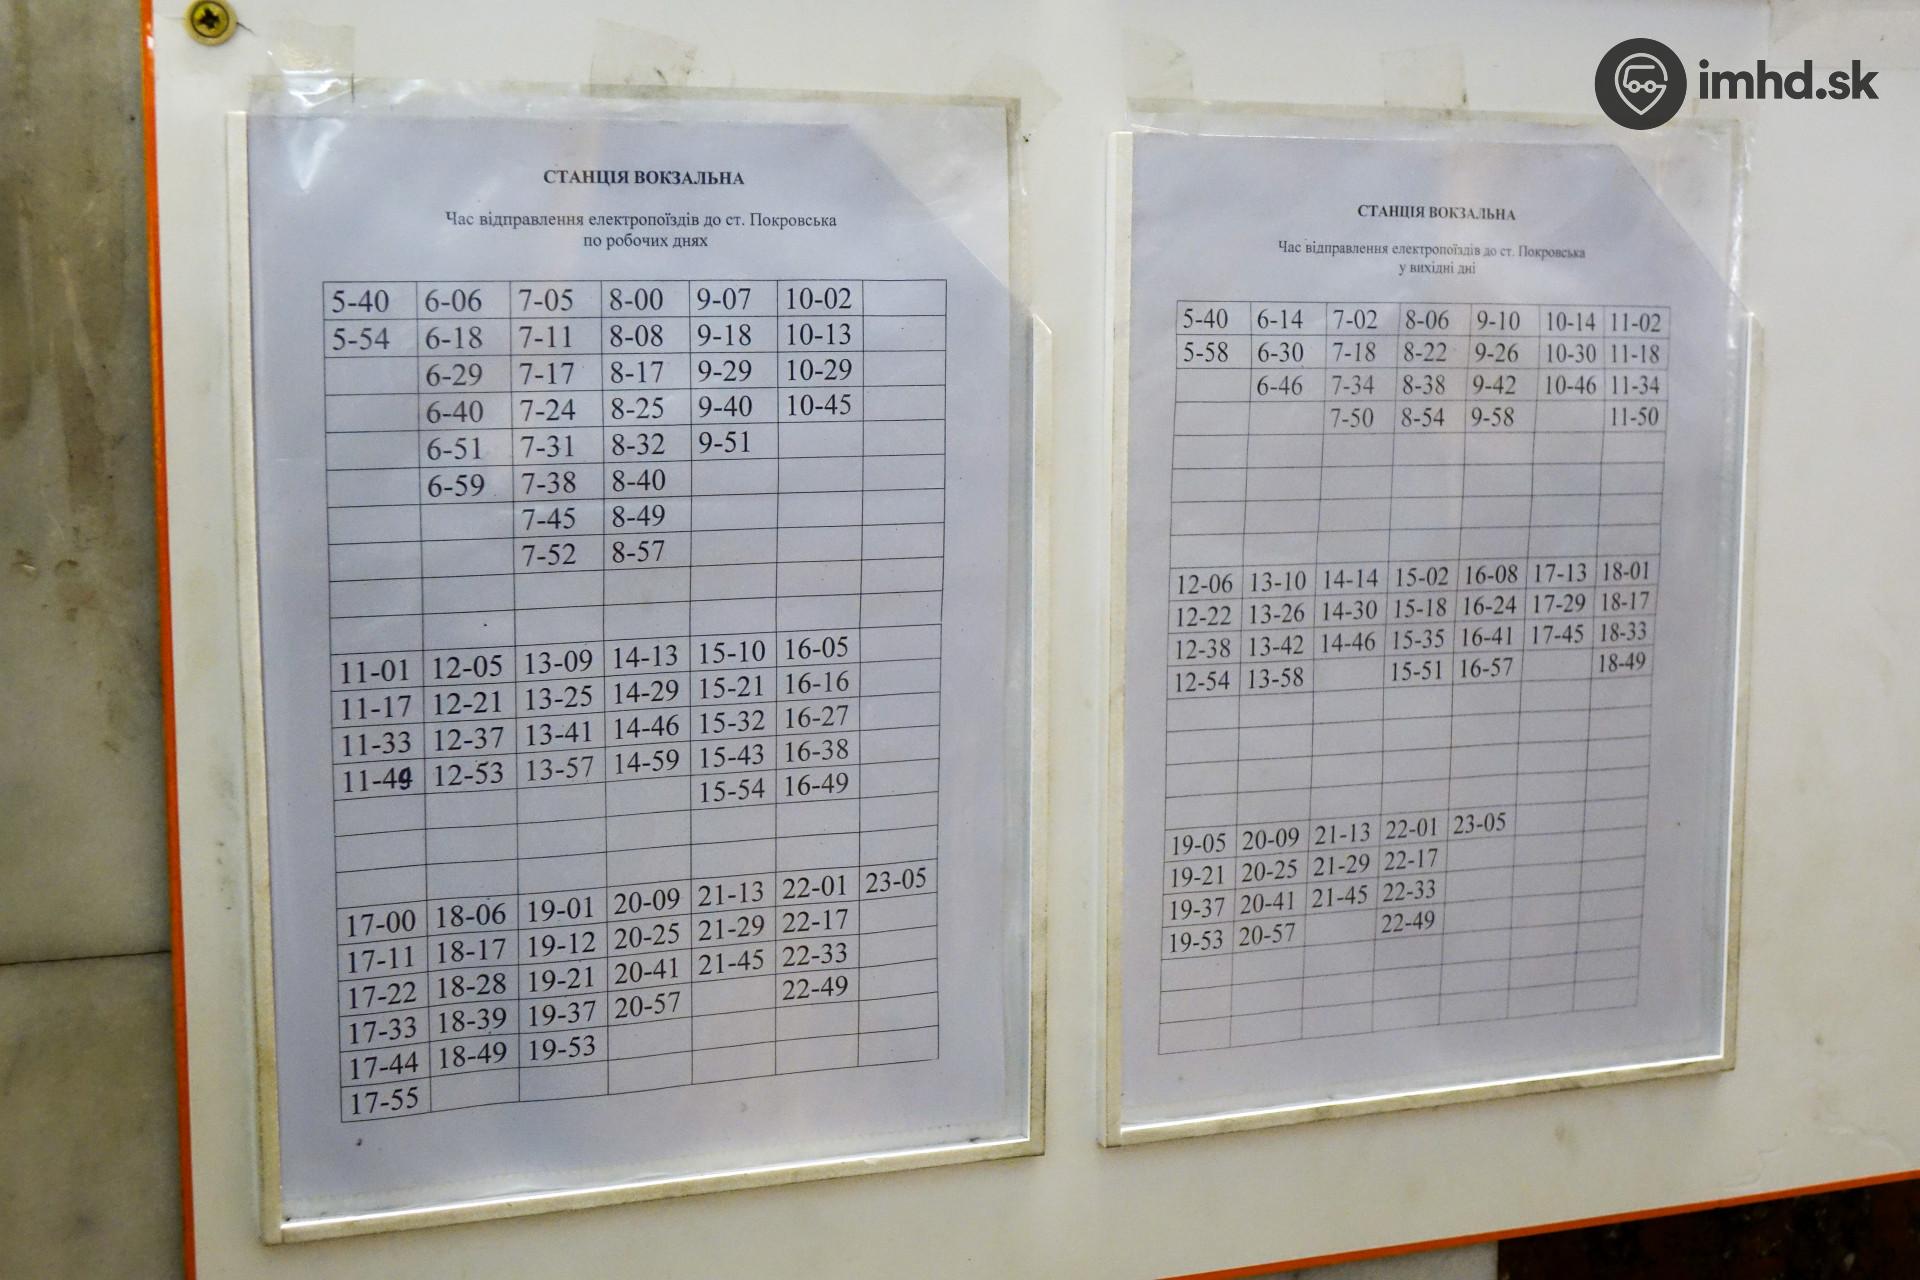 imhd.sk
СТАНЦІЯ ВОКЗАЛЬНА
Час відправлення електропоїздів до ст. Покровська
по робочих днях
5-40 6-06 7-05 8-00 9-07 10-02
5-54 6-18 7-11 8-08 9-18 10-13
6-29 7-17 8-17 9-29 10-29
6-40 7-24 8-25 9-40 10-45
6-51 7-31 8-32 9-51
6-59 7-38 8-40
7-45 8-49
7-52 8-57
11-01 12-05 13-09 14-13 15-10 16-05
11-17 12-21 13-25 14-29 15-21 16-16
11-33 12-37 13-41 14-46 15-32 16-27
11-49 12-53 13-57 14-59 15-43 16-38
15-54 16-49
17-00 18-06 19-01 20-09 21-13 22-01 23-05
17-11 18-17 19-12 20-25 21-29 22-17
17-22 18-28 19-21 20-41 21-45 22-33
17-33 18-39 19-37 20-57 22-49
17-44 18-49 19-53
17-55
СТАНЦІЯ ВОКЗАЛЬНА
Час відправлення електропоїздів до ст. Покровська
у вихідні дні
5-40 6-14 7-02 8-06 9-10 10-14 11-02
5-58 6-30 7-18 8-22 9-26 10-30 11-18
6-46 7-34 8-38 9-42 10-46 11-34
7-50 8-54 9-58 11-50
12-06 13-10 14-14 15-02 16-08 17-13 18-01
12-22 13-26 14-30 15-18 16-24 17-29 18-17
12-38 13-42 14-46 15-35 16-41 17-45 18-33
12-54 13-58 15-51 16-57 18-49
19-05 20-09 21-13 22-01 23-05
19-21 20-25 21-29 22-17
19-37 20-41 21-45 22-33
19-53 20-57 22-49